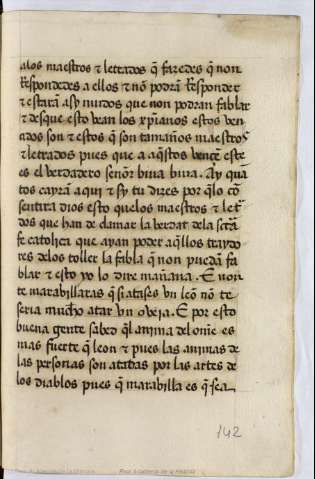 alos maestros ⁊ letrados q̃ faredes q̃ non
Respondedes a ellos ⁊ nõ podrã Responder
⁊ estarã asy mudos que non podran fablar
⁊ desque esto vean los xp̃ianos estos ven
cidos son ⁊ estos q̃ son tamaños maestros
⁊ letrados pues que a aq̃stos vençe este
es el verdadero señor biua biua. Ay quã
tos cayrã aqui ⁊ sy tu dizes por q̃ lo cõ
sentira dios esto quelos maestros ⁊ let̃
dos que han de clamar la verdat dela setã
fe catolica que ayan poder aq̃llos traydo
res delos toller la fabla q̃ non puedã fa
blar ⁊ esto yo lo dire mañana. E non
te marabillaras q̃ si atases vn leõ nõ te
seria mucho atar vn oveja. E por esto
buena gente sabed q̃l anima del om̃e es
mas fuerte q̃ leon ⁊ pues las animas de
las personas son atadas por las artes de
los diablos pues q̃ marabilla es q̃ sea
142